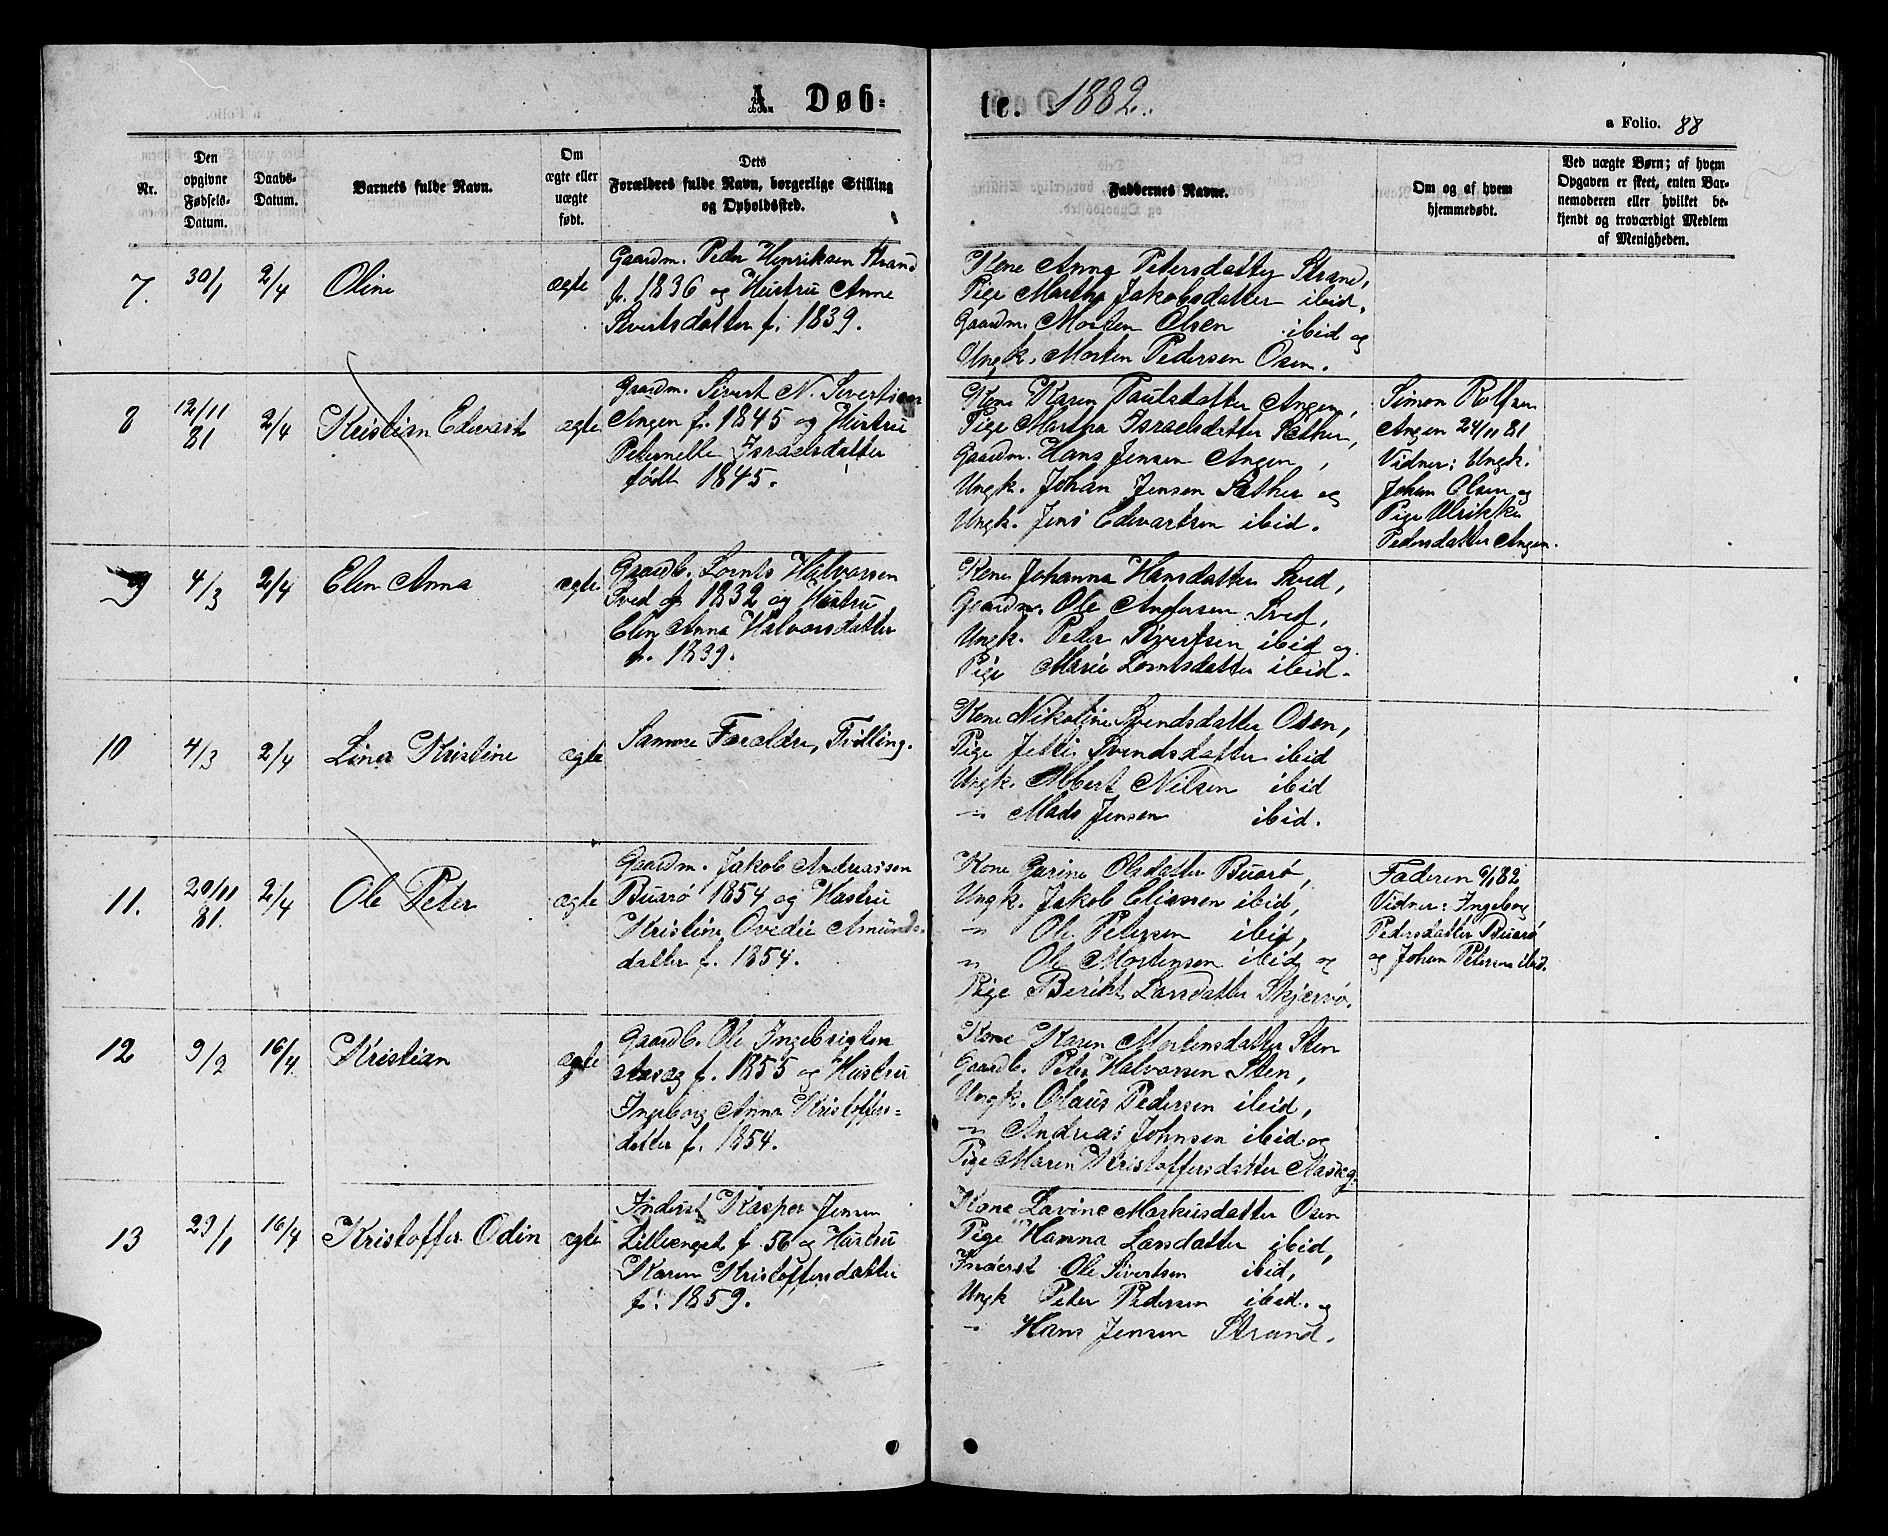 A. Døbte. 1882.
a Folio. 88
Nr.
Den opgivne Fødsels-Datum.
Daabs-Datum.
Barnets fulde Navn.
Om ægte eller uægte født.
Dets Forældres fulde Navn, borgerlige Stilling og Opholdssted.
Faddernes Navne.
Om og af hvem hjemmedøbt.
Ved uægte Børn; af hvem Opgaven er skeet, enten Barnemoderen eller hvilket bekjendt og troværdigt Medlem af Menigheden.
7. 30/1 2/4 Oline ægte
Gaardm. Peder Henriksen Strand
f. 1836 og Hustru Anne
Sivertsdatter f. 1839.
Kone Anna Petersdatter Strand,
Pige Martha Jakobsdatter ibid,
Gaardm. Morten Olsen ibid og
Ungk. Morten Pedersen Osen.
8 12/11 81 2/4 Kristian Edvard ægte
Gaardm. Sivert N. Sivertsen
Angen f. 1845 og Hustru
Peternelle Israelsdatter
født 1845.
Kone Karen Paulsdatter Angen,
Pige Martha Israelsdatter Sæther,
Gaardm. Hans Jensen Angen,
Ungk. Johan Jensen Sæther og
Ungk. Jens Edvartsen ibid.
Simon Rolfsen
Angen 24/11 81
Vidner: Ungk.
Johan Olsen og
Pige Ulrikke
Pedersdatter Angen.
9 4/3 2/4 Elen Anna ægte
Gaardb. Lornts Halvorsen
Sved f. 1832 og Hustru
Elen Anna Halvorsdatter
f. 1839.
Kone Johanna Hansdatter Sved,
Gaardm. Ole Andersen Sved,
Ungk. Peder Sivertsen ibid og
Pige Marie Lorntsdatter ibid.
10 4/3 2/4 Lina Kristine ægte
Samme Forældre, Tvilling.
Kone Nikoline Svendsdatter Osen,
Pige Jetti Svendsdatter ibid
Ungk. Albert Nilsen ibid
-"- Mads Jensen ibid.
11. 29/11 81. 2/4 Ole Peter ægte
Gaardm. Jakob Andreassen
Buarø 1854 og Hustru
Kristine Ovedie Amunds-
datter f. 1854.
Kone Gurine Olsdatter Buarø,
Ungk. Jakob Eliassen ibid,
-"- Ole Petersen ibid,
-"- Ole Mortensen ibid og
Pige Berikt Larsdatter Skjervø.
Faderen 6/1 82
Vidner: Ingeborg
Pedersdatter Buarø
og Johan Petersen ibid.
12 9/2 16/4 Kristian ægte
Gaardb. Ole Ingebrigtsen
f. 1855 og Hustru
Ingeborg Anna Kristoffers-
datter f. 1854.
Kone Karen Mortensdatter Sten
Gaardb. Peter Halvorsen Sten,
Ungk. Olaus Pedersen ibid,
-"- Andreas Johnsen ibid og
Pige Maren Kristoffersdatter
13 29/1 16/4 Kristoffer Odin ægte
Inderst Kasper Jensen
Lilleenget f. 56 og Hustru
Karen Kristoffersdatter
f. 1859.
Kone Lavine Markusdatter Osen
Pige Hanna Larsdatter ibid,
Inderst Ole Sivertsen ibid,
Ungk Peter Pedersen ibid. og
-"- Hans Jensen Strand.